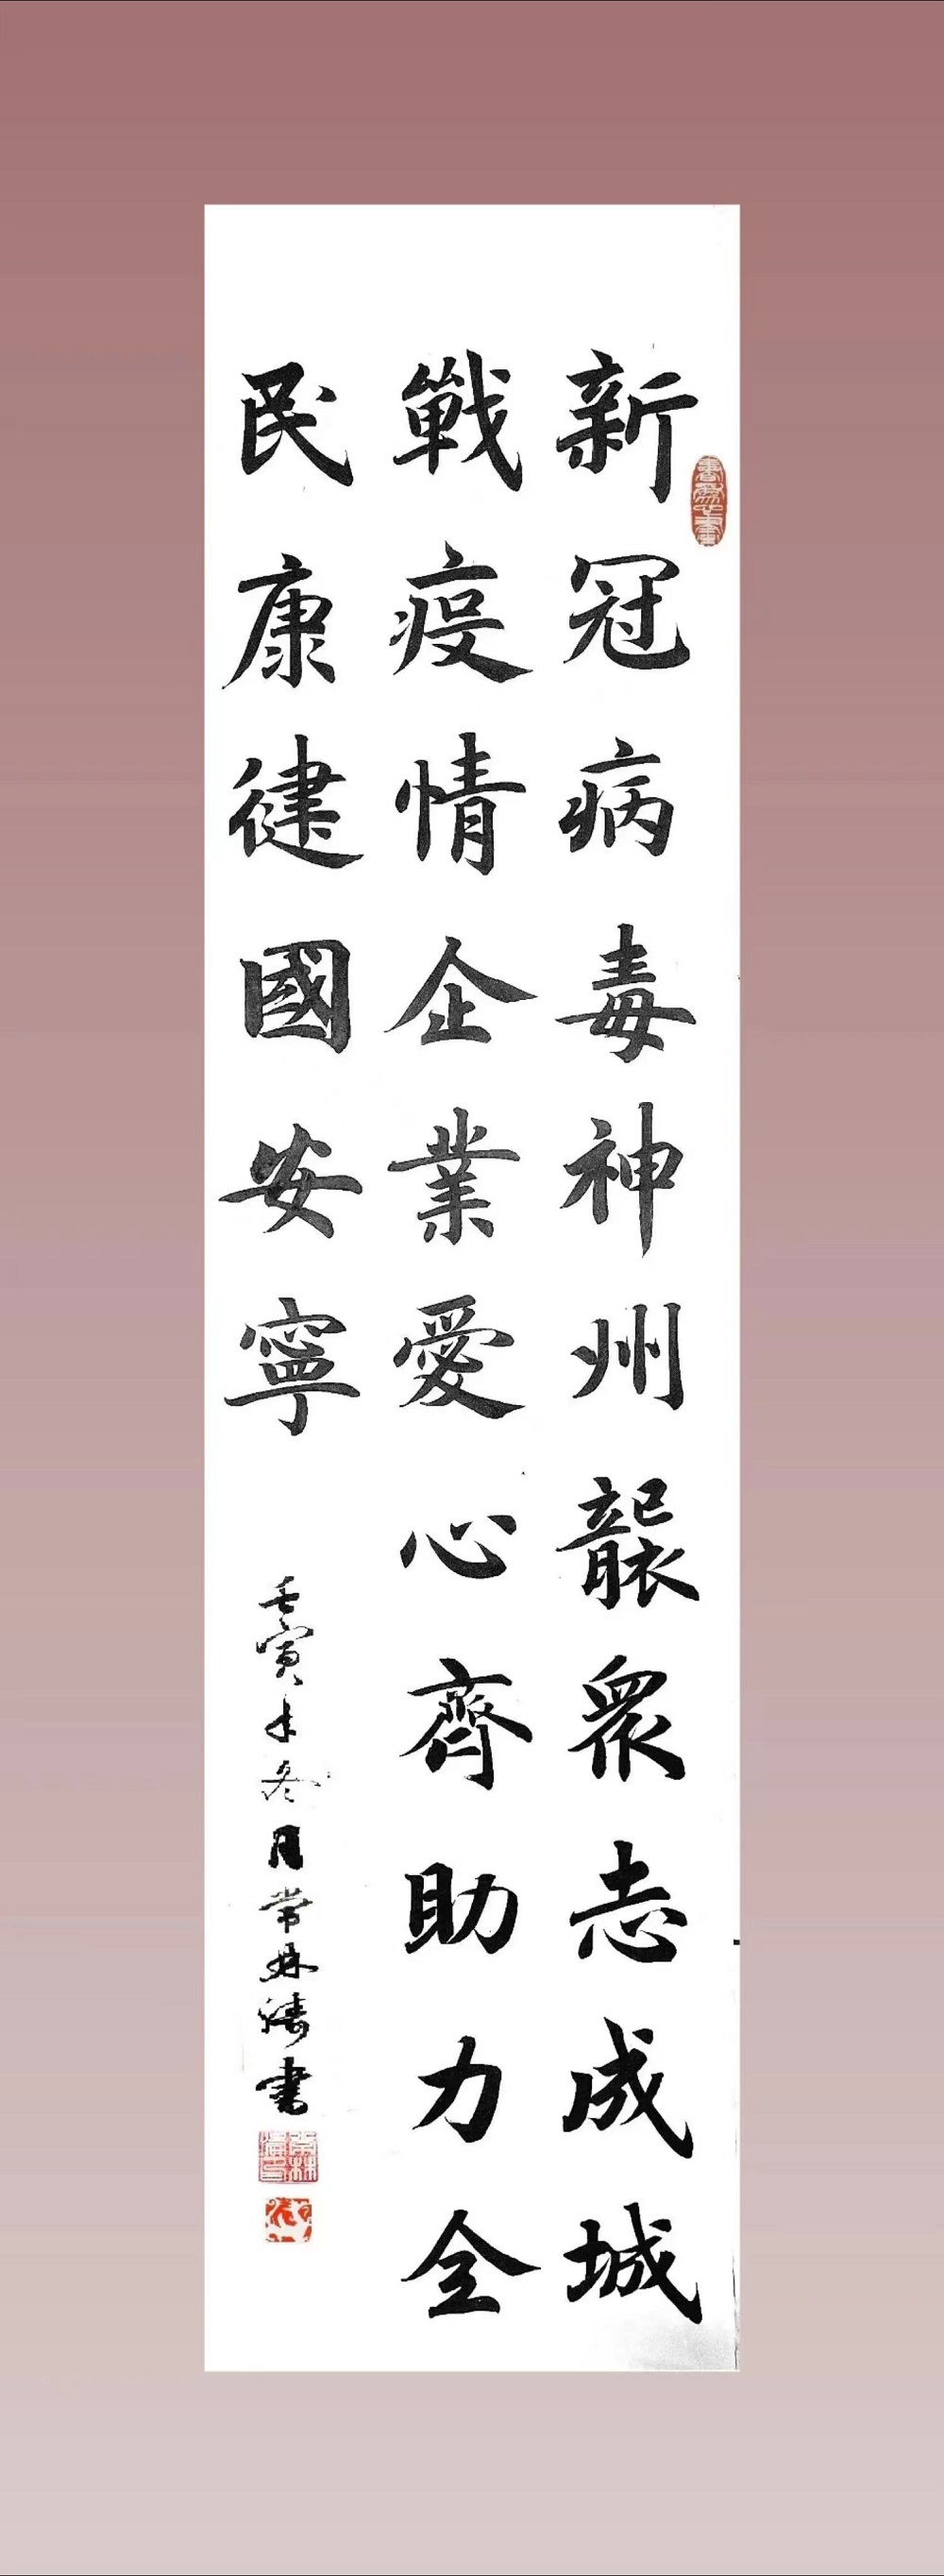 新冠病毒神州襲眾志成城
戰疫情企業愛心齊助力全
民康健國安寧
壬寅年冬月常林濤書
書為心畫